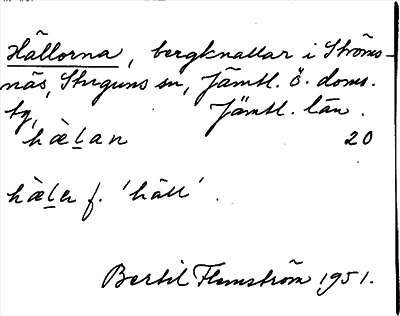 Hällorna, bergknallar i Ströms-
näs, Stuguns sn, Jämtl. ö. doms.
tg, Jämtl. län.
hæ̀ḷan 20
hæ̀ḷa f. 'häll'.
Bertil Flemström 1951.